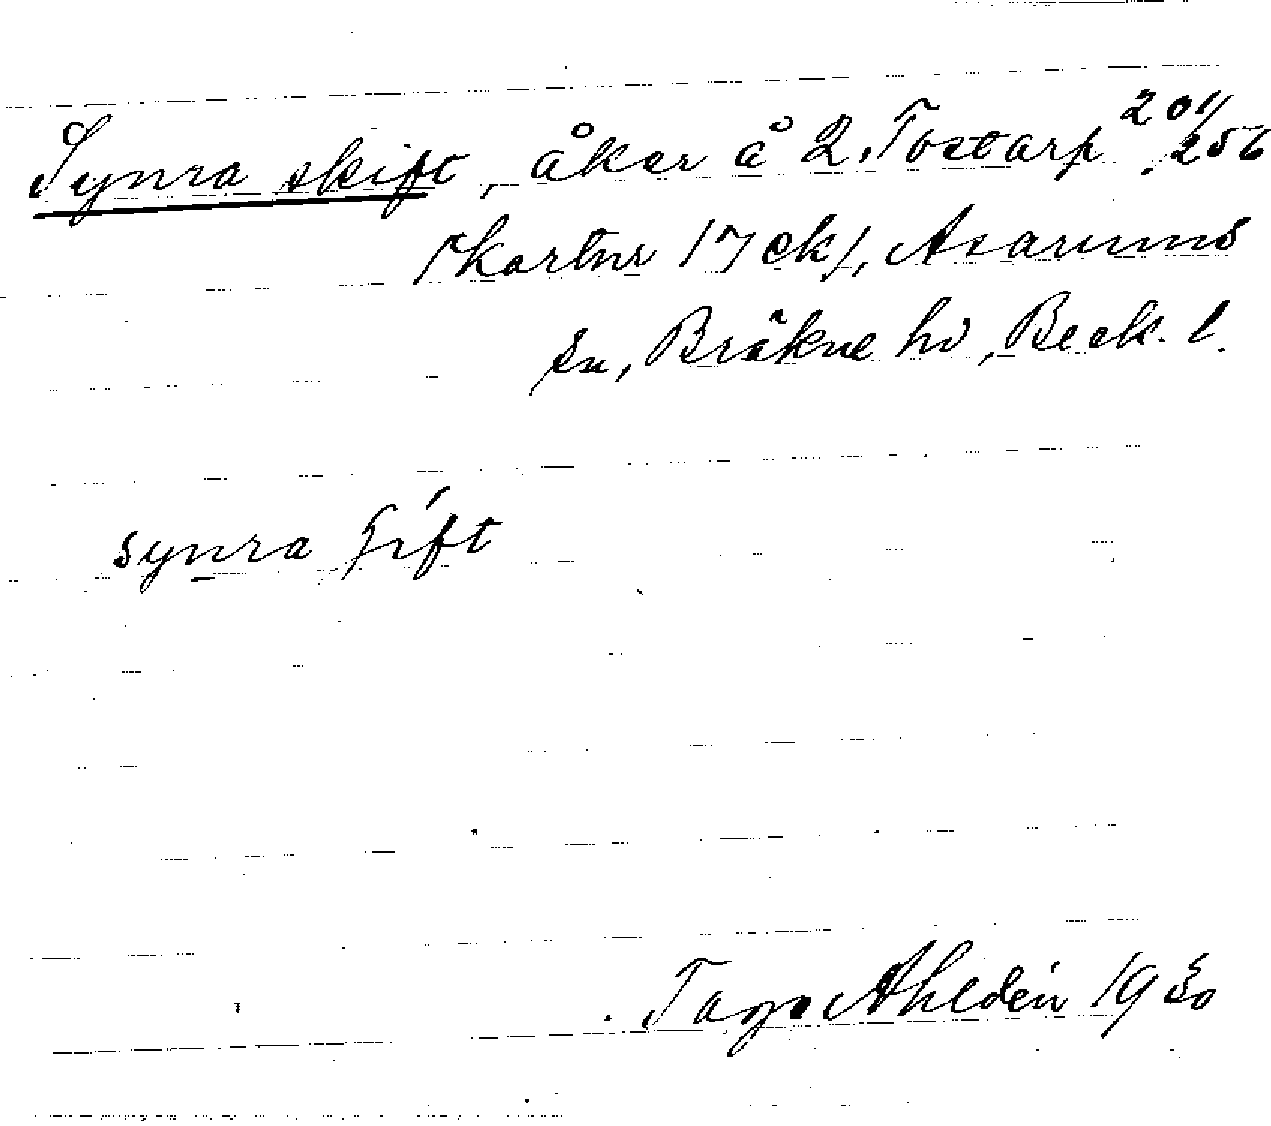 Synra skift, åker å 2. Tostarp 201/256
/kartnr 17 ek/, Asarums
sn, Bräkne hd, Bleck. l.
synra ʃift
Tage Ahldén 1930